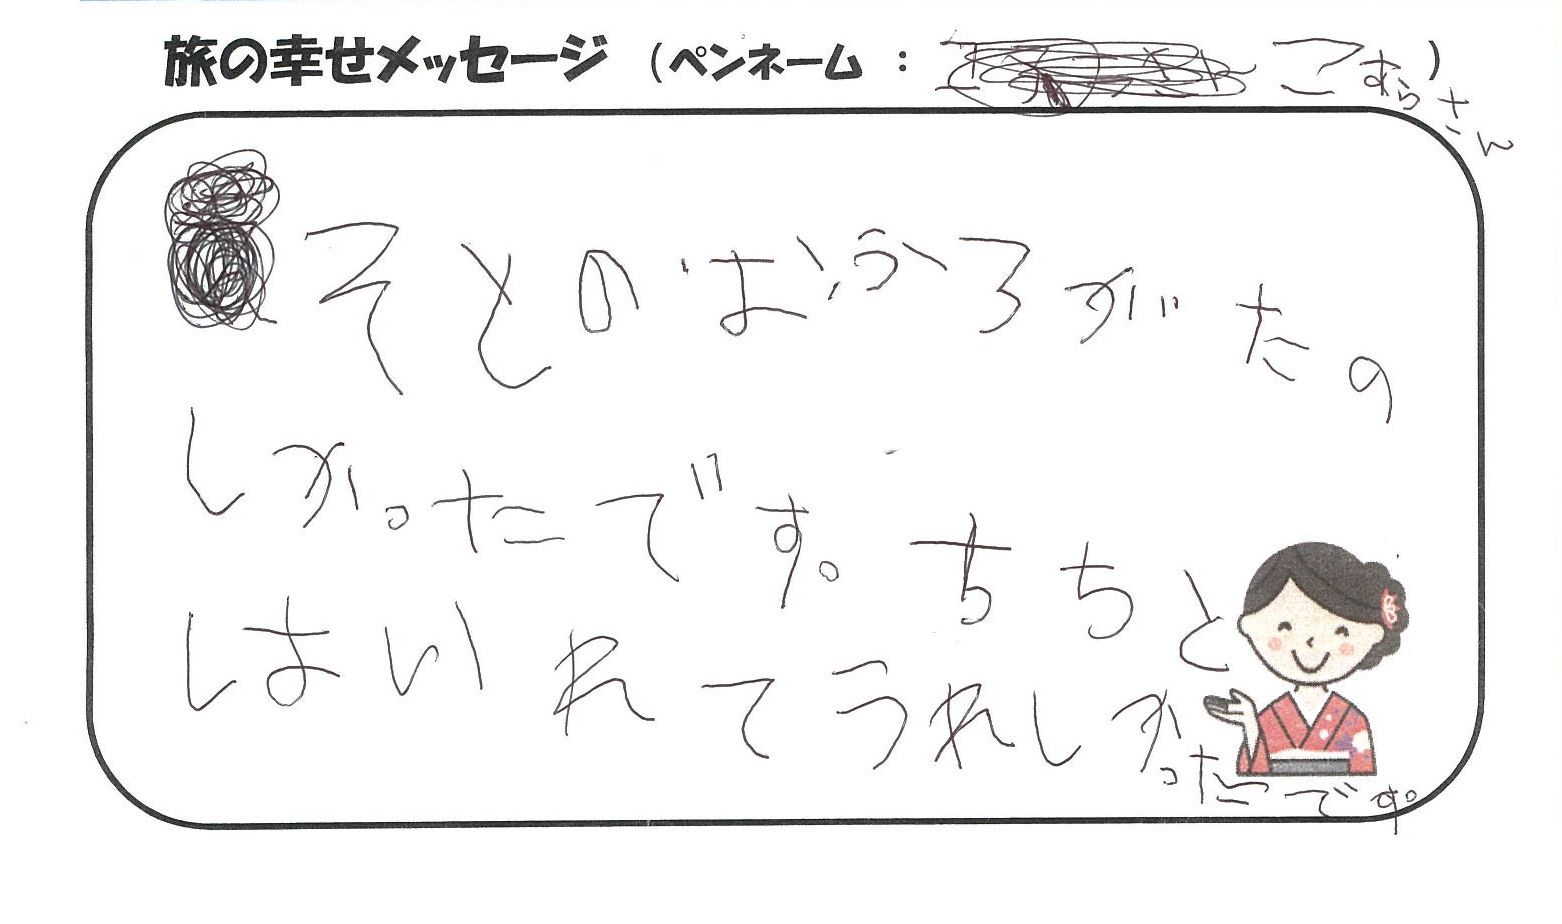 旅の幸せメッセージ (ペンネーム : こむらさん)
そとのおふろがたの
しかったです。ちちと
はいれてうれしかったです。